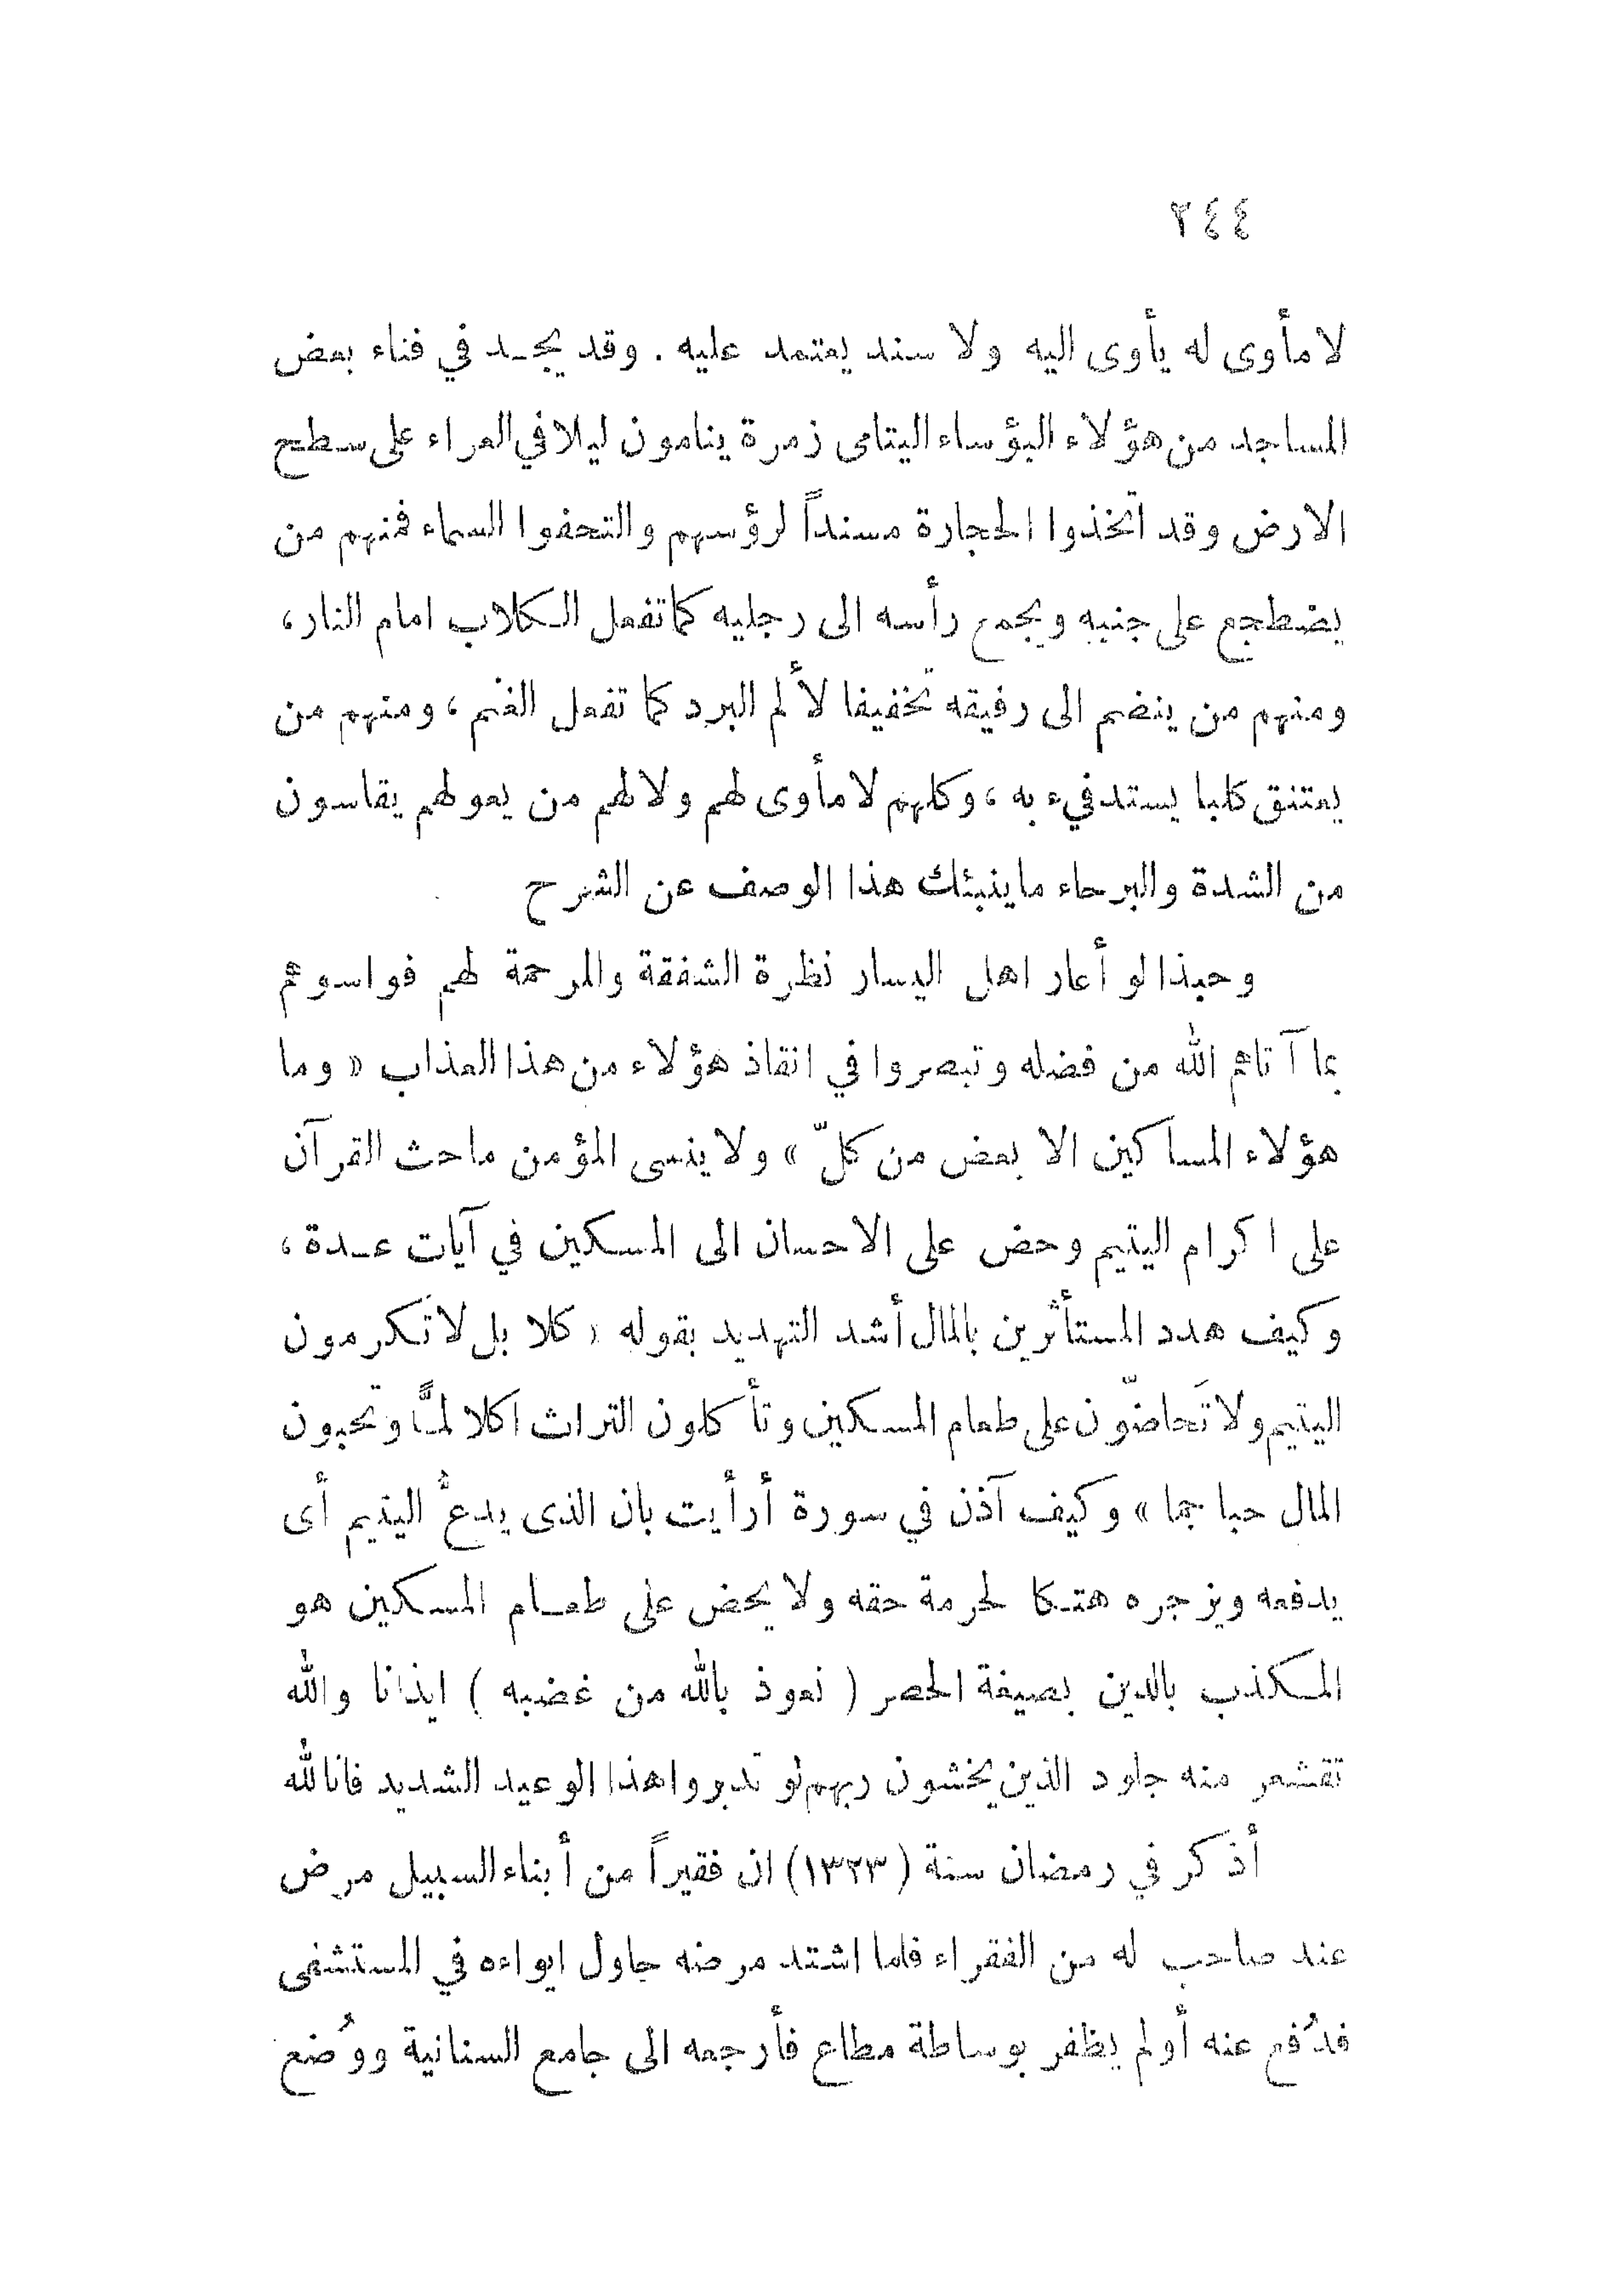 ٢٤٤
لا مأوى له يأوى اليه ولا سند يعتمد عليه . وقد يجد في فناء بعض
المساجد من هؤلاء البؤساء اليتامى زمرة ينامون ليلا في العراء على سطح
الارض وقد اتخذوا الحجارة مسنداً لرؤسهم والتحفوا السماء فمنهم من
يضطجع على جنبه ويجمع رأسه الى رجليه كما تفعل الكلاب امام النار ،
ومنهم من ينضم الى رفيقه تخفيفا لألم البرد كما تفعل الغنم ، ومنهم من
يعتنق كلبا يستدفيء به ، وكلهم لا مأوى لهم ولا لهم من يعولهم يقاسون
من الشدة والبرحاء ما ينبئك هذا الوصف عن الشرح
وحبذا لو أعار اهل اليسار نظرة الشفقة والمرحمة لهم فواسوهم
بما آتاهم الله من فضله وتبصروا في انقاذ هؤلاء من هذا العذاب « وما
هؤلاء المساكين الا بعض من كلّ » ولا ينسى المؤمن ما حث القرآن
على اكرام اليتيم وحض على الاحسان الى المسكين في آيات عدة ،
وكيف هدد المستأثرين بالمال أشد التهديد بقوله « كلا بل لا تكرمون
اليتيم ولا تَحاضّون على طعام المسكين وتأكلون التراث اكلا لمًّا وتحبون
المال حبا جما » وكيف آذن في سورة أرأيت بان الذى يدعُّ اليتيم أى
يدفعه ويزجره هتكا لحرمة حقه ولا يحض على طعام المسكين هو
المكذب بالدين بصيغة الحصر ( نعوذ بالله من غضبه ) ايذانا والله
تقشعر منه جلود الذين يخشون ربهم لو تدبروا هذا الوعيد الشديد فانا لله
أذكر في رمضان سنة (١٣٢٣) ان فقيراً من أبناء السبيل مرض
عند صاحب له من الفقراء فلما اشتد مرضه حاول ايواءه في المستشفى
فدُفع عنه أو لم يظفر بوساطة مطاع فأرجعه الى جامع السنانية ووُضع